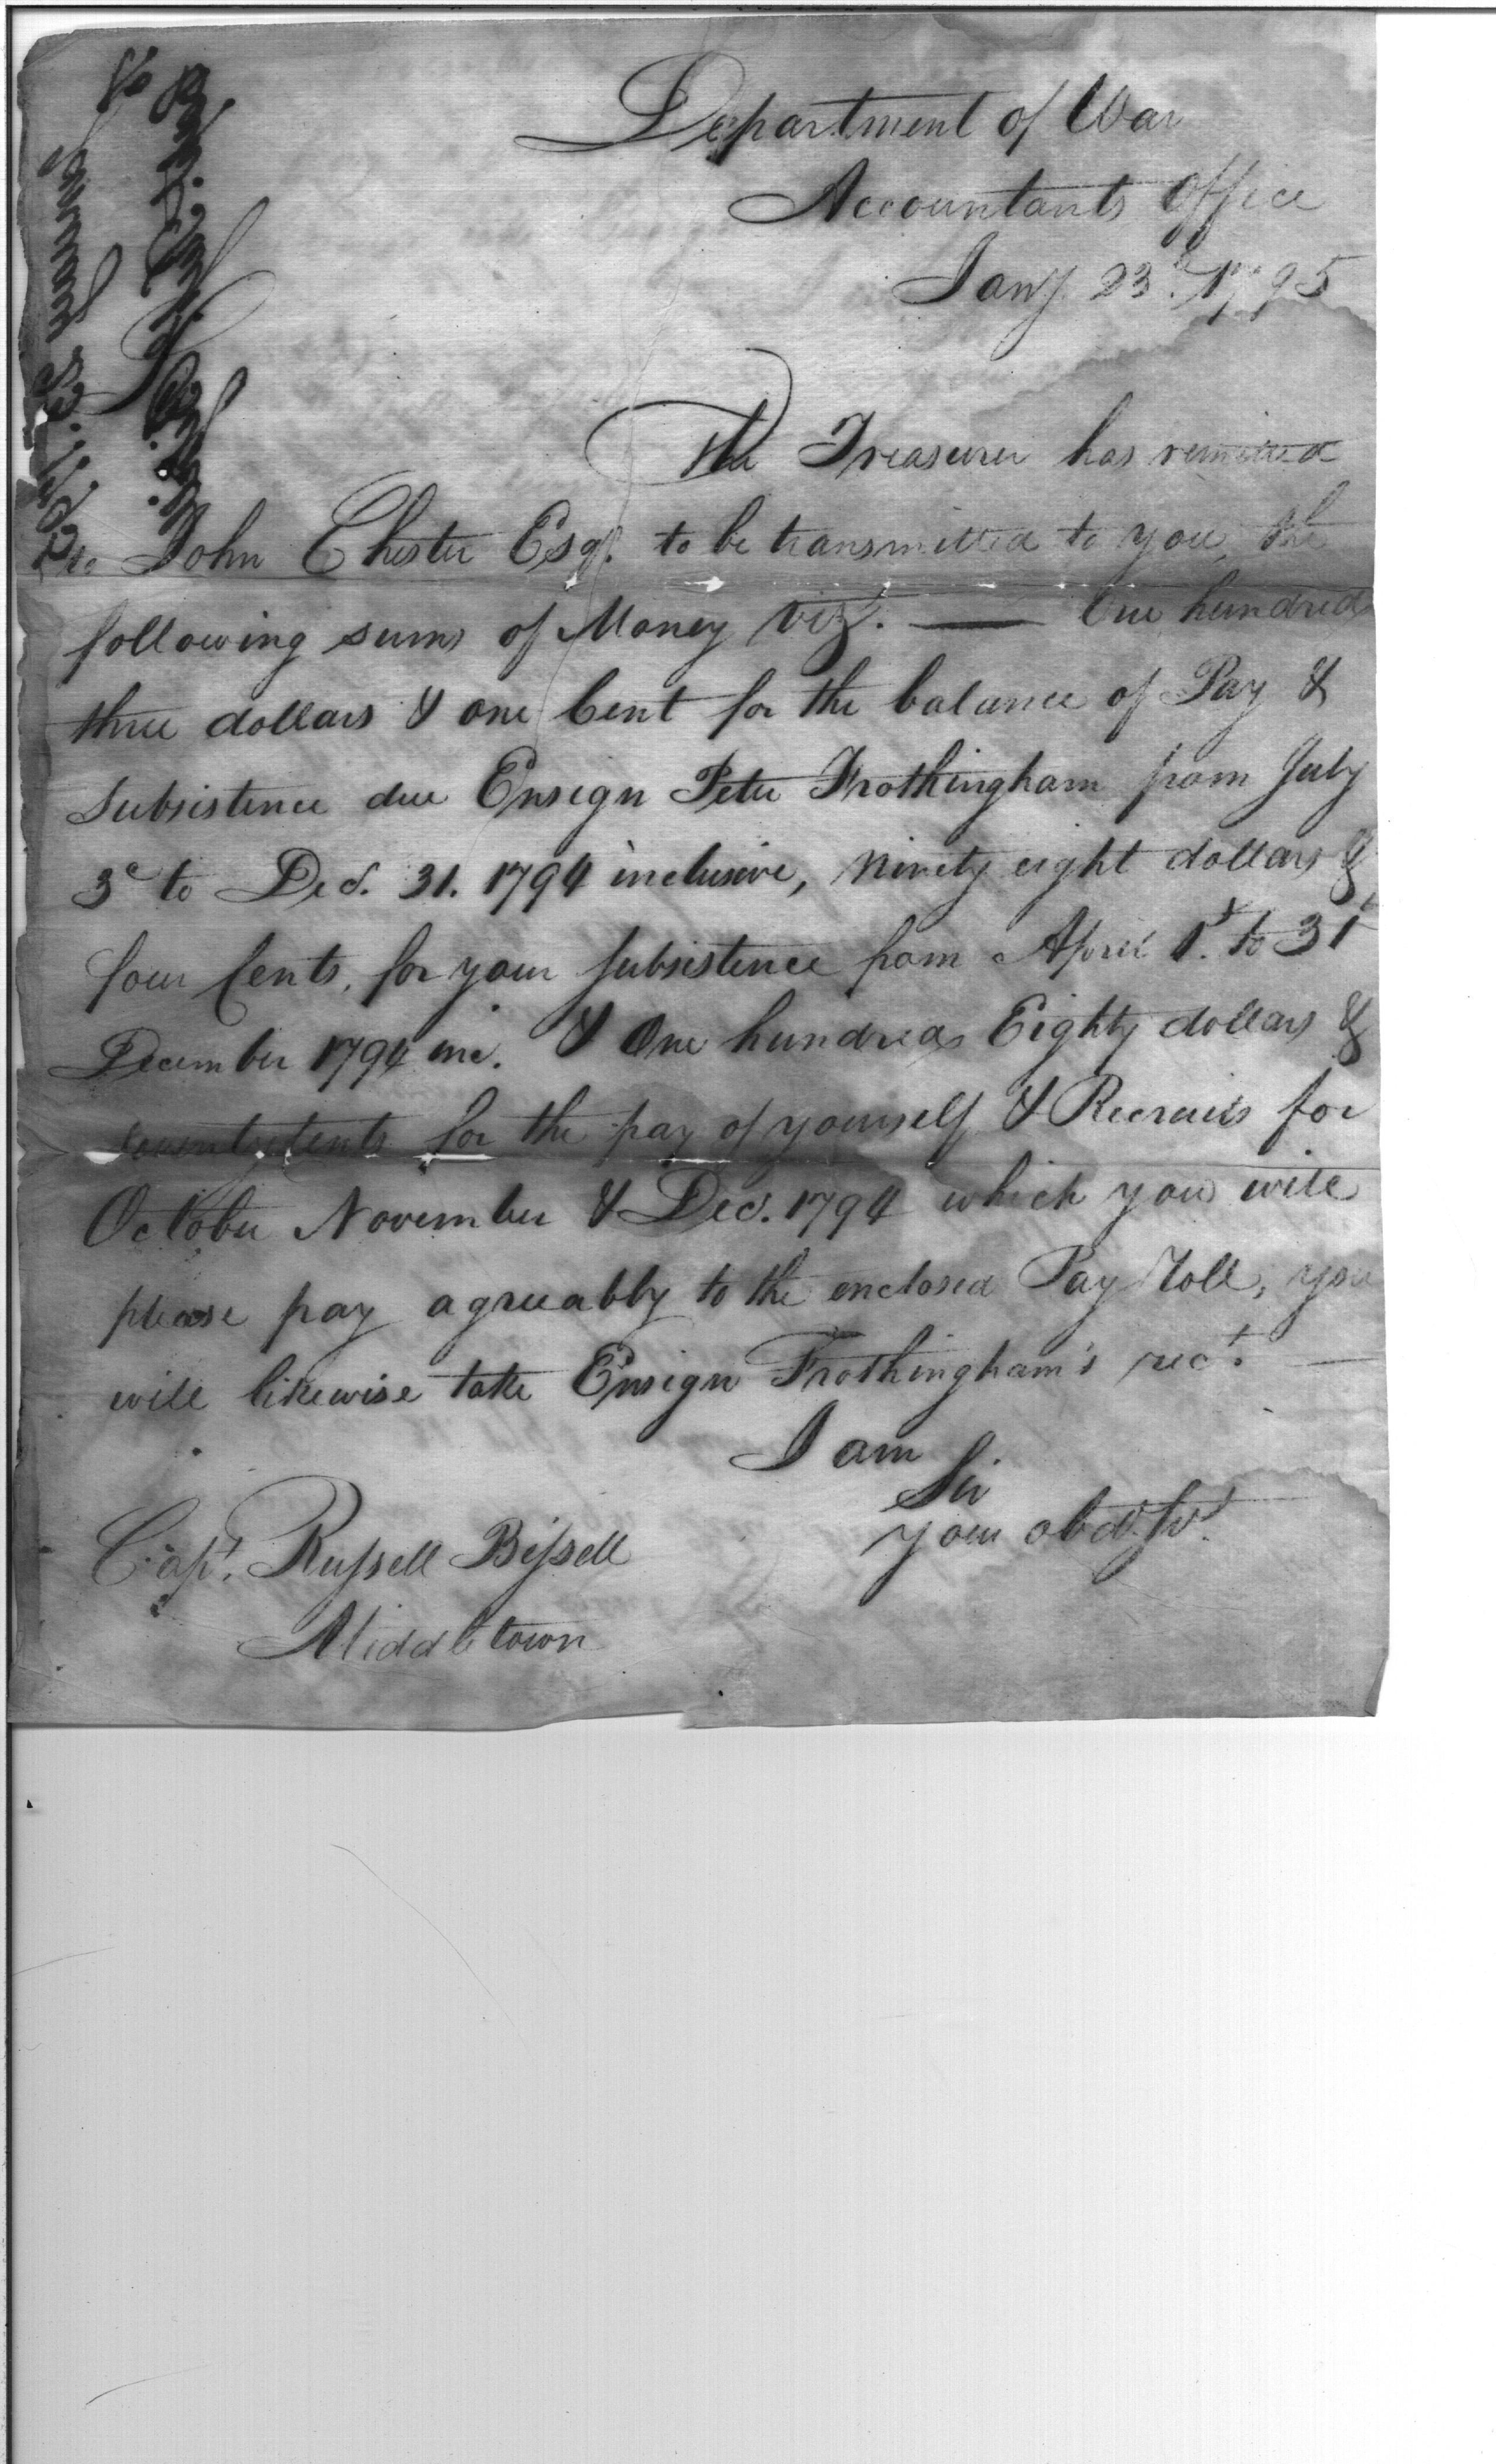 Department of War
Accountants Office
Jany. 23d. 1795
The Treasurer has remitted
to John Chester Esqr. to be transmitted to you, the
following sums of Money vizt. — One hundred
three dollars & one Cent for the balance of Pay &
Subsistence due Ensign Peter Frothingham from July
3d to Decr. 31. 1794 inclusive, Ninety eight dollars &
four Cents, for your Subsistence from April 1st. to 31st
December 1794 inc. & One hundred Eighty dollars &
seventy Cents for the pay of yourself & Recruits for
October November & Decr. 1794 which you will
please pay agreeably to the enclosed Pay Roll, you
will likewise take Ensign Frothingham's rect. —
I am
Sir
your obdt. Svt.
Capt. Russell Bissell
Middletown